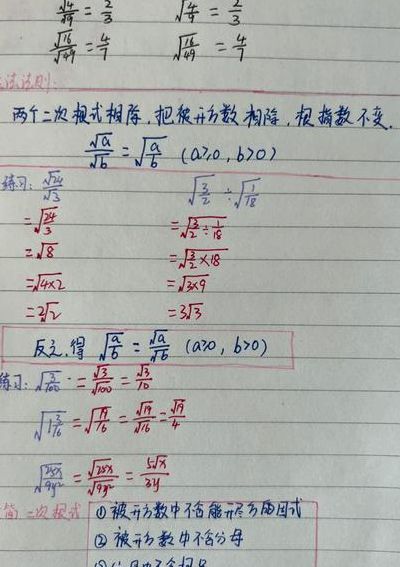 √4/√9 = 2/3 √(4/9) = 2/3
√16/√49 = 4/7 √(16/49) = 4/7
法法则:
两个二次根式相除,把被开方数相除,根指数不变.
√a/√b = √(a/b) (a≥0, b>0)
练习: √24/√3 √(3/2) ÷ √(1/18)
= √(24/3) = √(3/2 ÷ 1/18)
= √8 = √(3/2 × 18)
= √(4×2) = √(3×9)
= 2√2 = 3√3
反之,得 √(a/b) = √a/√b (a≥0, b>0)
练习: √(3/100) = √3/√100 = √3/10
√(1 3/16) = √(19/16) = √19/√16 = √19/4
√(25x/9y²) = √25x/√9y² = 5√x/3y
简二次根式 ① 被开方数中不含能开尽方的因式
② 被开方数中不含分母